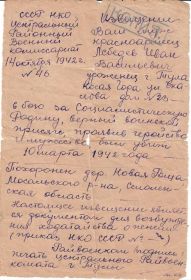 СССР НКО
Центральный
Районный
Военный
комиссариат
14 октября 1942 г.
№ 46
Извещение
Ваш муж
красноармеец
Лебедев Иван
Васильевич
уроженец г. Тула
дом № 23
в бою за Социалистическую
Родину, верный воинской
присяге, проявив геройство
и мужество был убит
10 марта 1942 года
Похоронен дер. Новая Роща
Мосальского р-на, Смолен-
ская область
Настоящее извещение являет-
ся документом для возбужде-
ния ходатайства о пенсии
(приказ НКО СССР №
Райвоенком подпись
печать центрального Райвоен-
комата г. Тулы